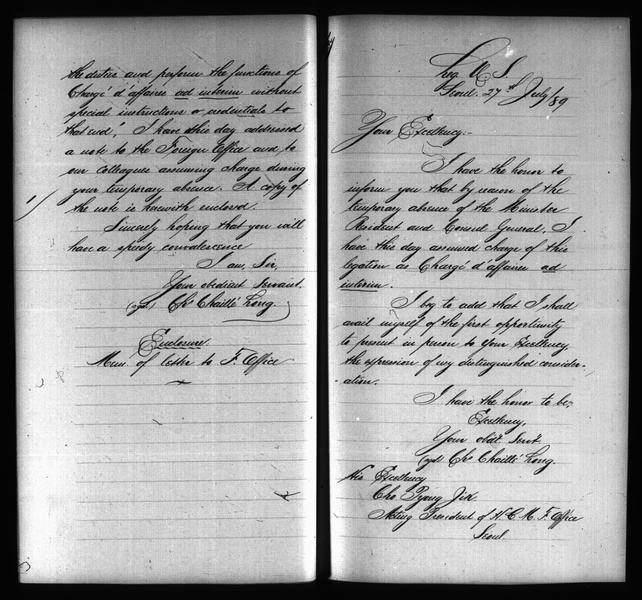 the duties and perform the functions of
Chargé d'affaires ad interim without
special instructions or credentials to
that end. I have this day addressed
a note to the Foreign Office and to
our Colleagues assuming charge during
your temporary absence. A copy of
1/ the note is herewith enclosed.
Sincerely hoping that you will
have a speedy convalescence
I am, Sir,
Your obedient Servant.
(sgd) Ch. Chaillé Long.
Enclosure
Mem. of letter to F. Office
Leg. U. S.
Seoul. 27th July/89
Your Excellency:-
I have the honor to
inform you that by reason of the
temporary absence of the Minister
Resident and Consul General, I
have this day assumed charge of this
legation as Chargé d'affaires ad
interim.
I beg to add that I shall
avail myself of the first opportunity
to present in person to Your Excellency
the expression of my distinguished consider-
-ation.
I have the honor to be,
Excellency,
Your obdt. Servt.
(sgd) Ch. Chaillé Long.
His Excellency
Cho Pyong Jik
Acting President of H. C. M. F. Office
Seoul.